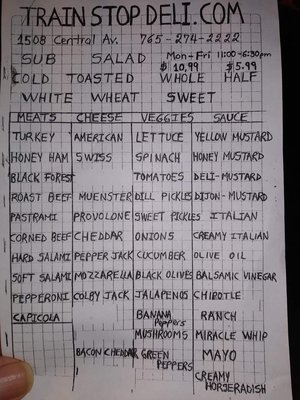 TRAIN STOP DELI.COM
1508 Central Av. 765-274-2222
SUB SALAD Mon-Fri 11:00-6:30pm
$10.99 $5.99
COLD TOASTED WHOLE HALF
WHITE WHEAT SWEET
MEATS CHEESE VEGGIES SAUCE
TURKEY AMERICAN LETTUCE YELLOW MUSTARD
HONEY HAM SWISS SPINACH HONEY MUSTARD
BLACK FOREST TOMATOES DELI-MUSTARD
ROAST BEEF MUENSTER DILL PICKLES DIJON-MUSTARD
PASTRAMI PROVOLONE SWEET PICKLES ITALIAN
CORNED BEEF CHEDDAR ONIONS CREAMY ITALIAN
HARD SALAMI PEPPER JACK CUCUMBER OLIVE OIL
SOFT SALAMI MOZZARELLA BLACK OLIVES BALSAMIC VINEGAR
PEPPERONI COLBY JACK JALAPENOS CHIPOTLE
CAPICOLA BANANA PEPPERS RANCH
MUSHROOMS MIRACLE WHIP
BACON CHEDDAR GREEN PEPPERS MAYO
CREAMY HORSERADISH